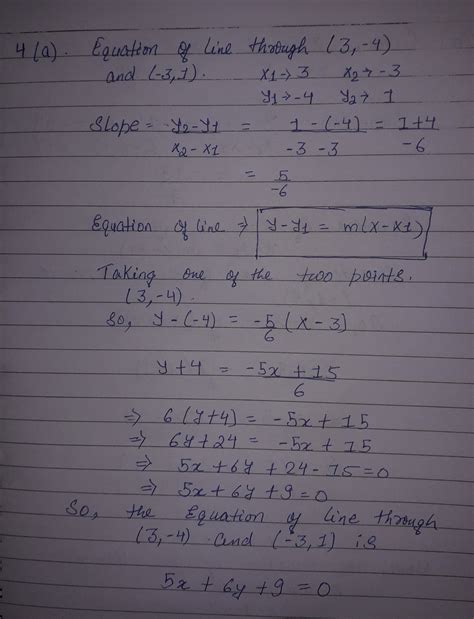 4(a). Equation of line through (3,-4)
and (-3,1). x1→3 x2→-3
y1→-4 y2→1
Slope = y2-y1 = 1-(-4) = 1+4
x2-x1 -3-3 -6
= 5
-6
Equation of line ⇒ y-y1 = m(x-x1)
Taking one of the two points.
(3,-4).
So, y-(-4) = -5 (x-3)
6
y+4 = -5x+15
6
⇒ 6(y+4) = -5x+15
⇒ 6y+24 = -5x+15
⇒ 5x+6y+24-15=0
⇒ 5x+6y+9=0
So, the Equation of line through
(3,-4) and (-3,1) is
5x+6y+9=0